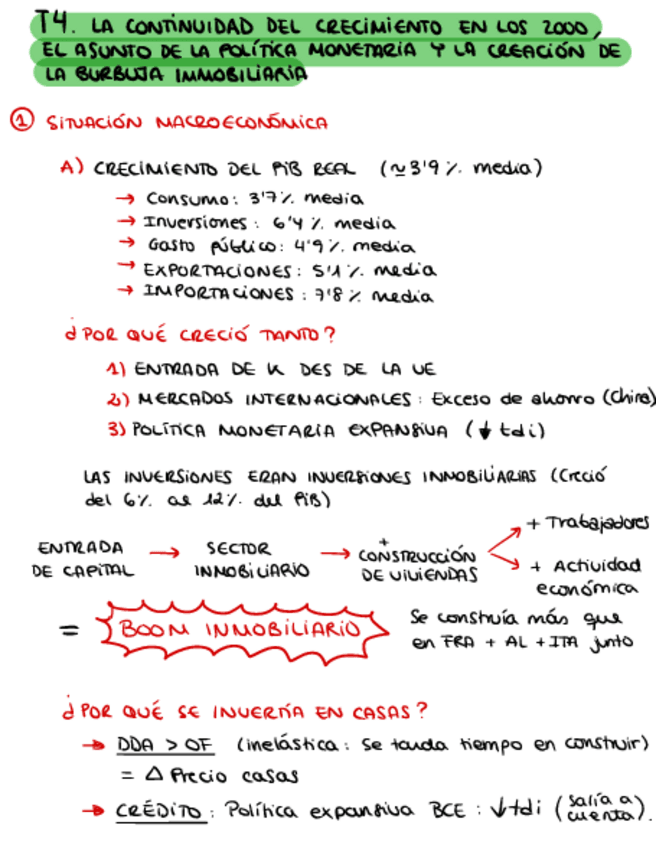 T4. LA CONTINUIDAD DEL CRECIMIENTO EN LOS 2000,
EL ASUNTO DE LA POLÍTICA MONETARIA Y LA CREACIÓN DE
LA BURBUJA INMOBILIARIA
① SITUACIÓN MACROECONÓMICA
A) CRECIMIENTO DEL PIB REAL (≃3'9% media)
→ Consumo: 3'7% media
→ Inversiones: 6'4% media
→ Gasto público: 4'9% media
→ EXPORTACIONES: 5'1% media
→ IMPORTACIONES: 7'8% media
¿POR QUÉ CRECIÓ TANTO?
1) ENTRADA DE K DES DE LA UE
2) MERCADOS INTERNACIONALES: Exceso de ahorro (China)
3) POLÍTICA MONETARIA EXPANSIVA (↓ tdi)
LAS INVERSIONES ERAN INVERSIONES INMOBILIARIAS (Creció
del 6% al 12% del PIB)
ENTRADA DE CAPITAL → SECTOR INMOBILIARIO → + CONSTRUCCIÓN DE VIVIENDAS
+ Trabajadores
+ Actividad
económica
= BOOM INMOBILIARIO
Se construía más que
en FRA + AL + ITA junto
¿POR QUÉ SE INVERTÍA EN CASAS?
→ DDA > OF (inelástica: Se tarda tiempo en construir)
= Δ Precio casas
→ CRÉDITO: Política expansiva BCE: ↓tdi (salía a cuenta).